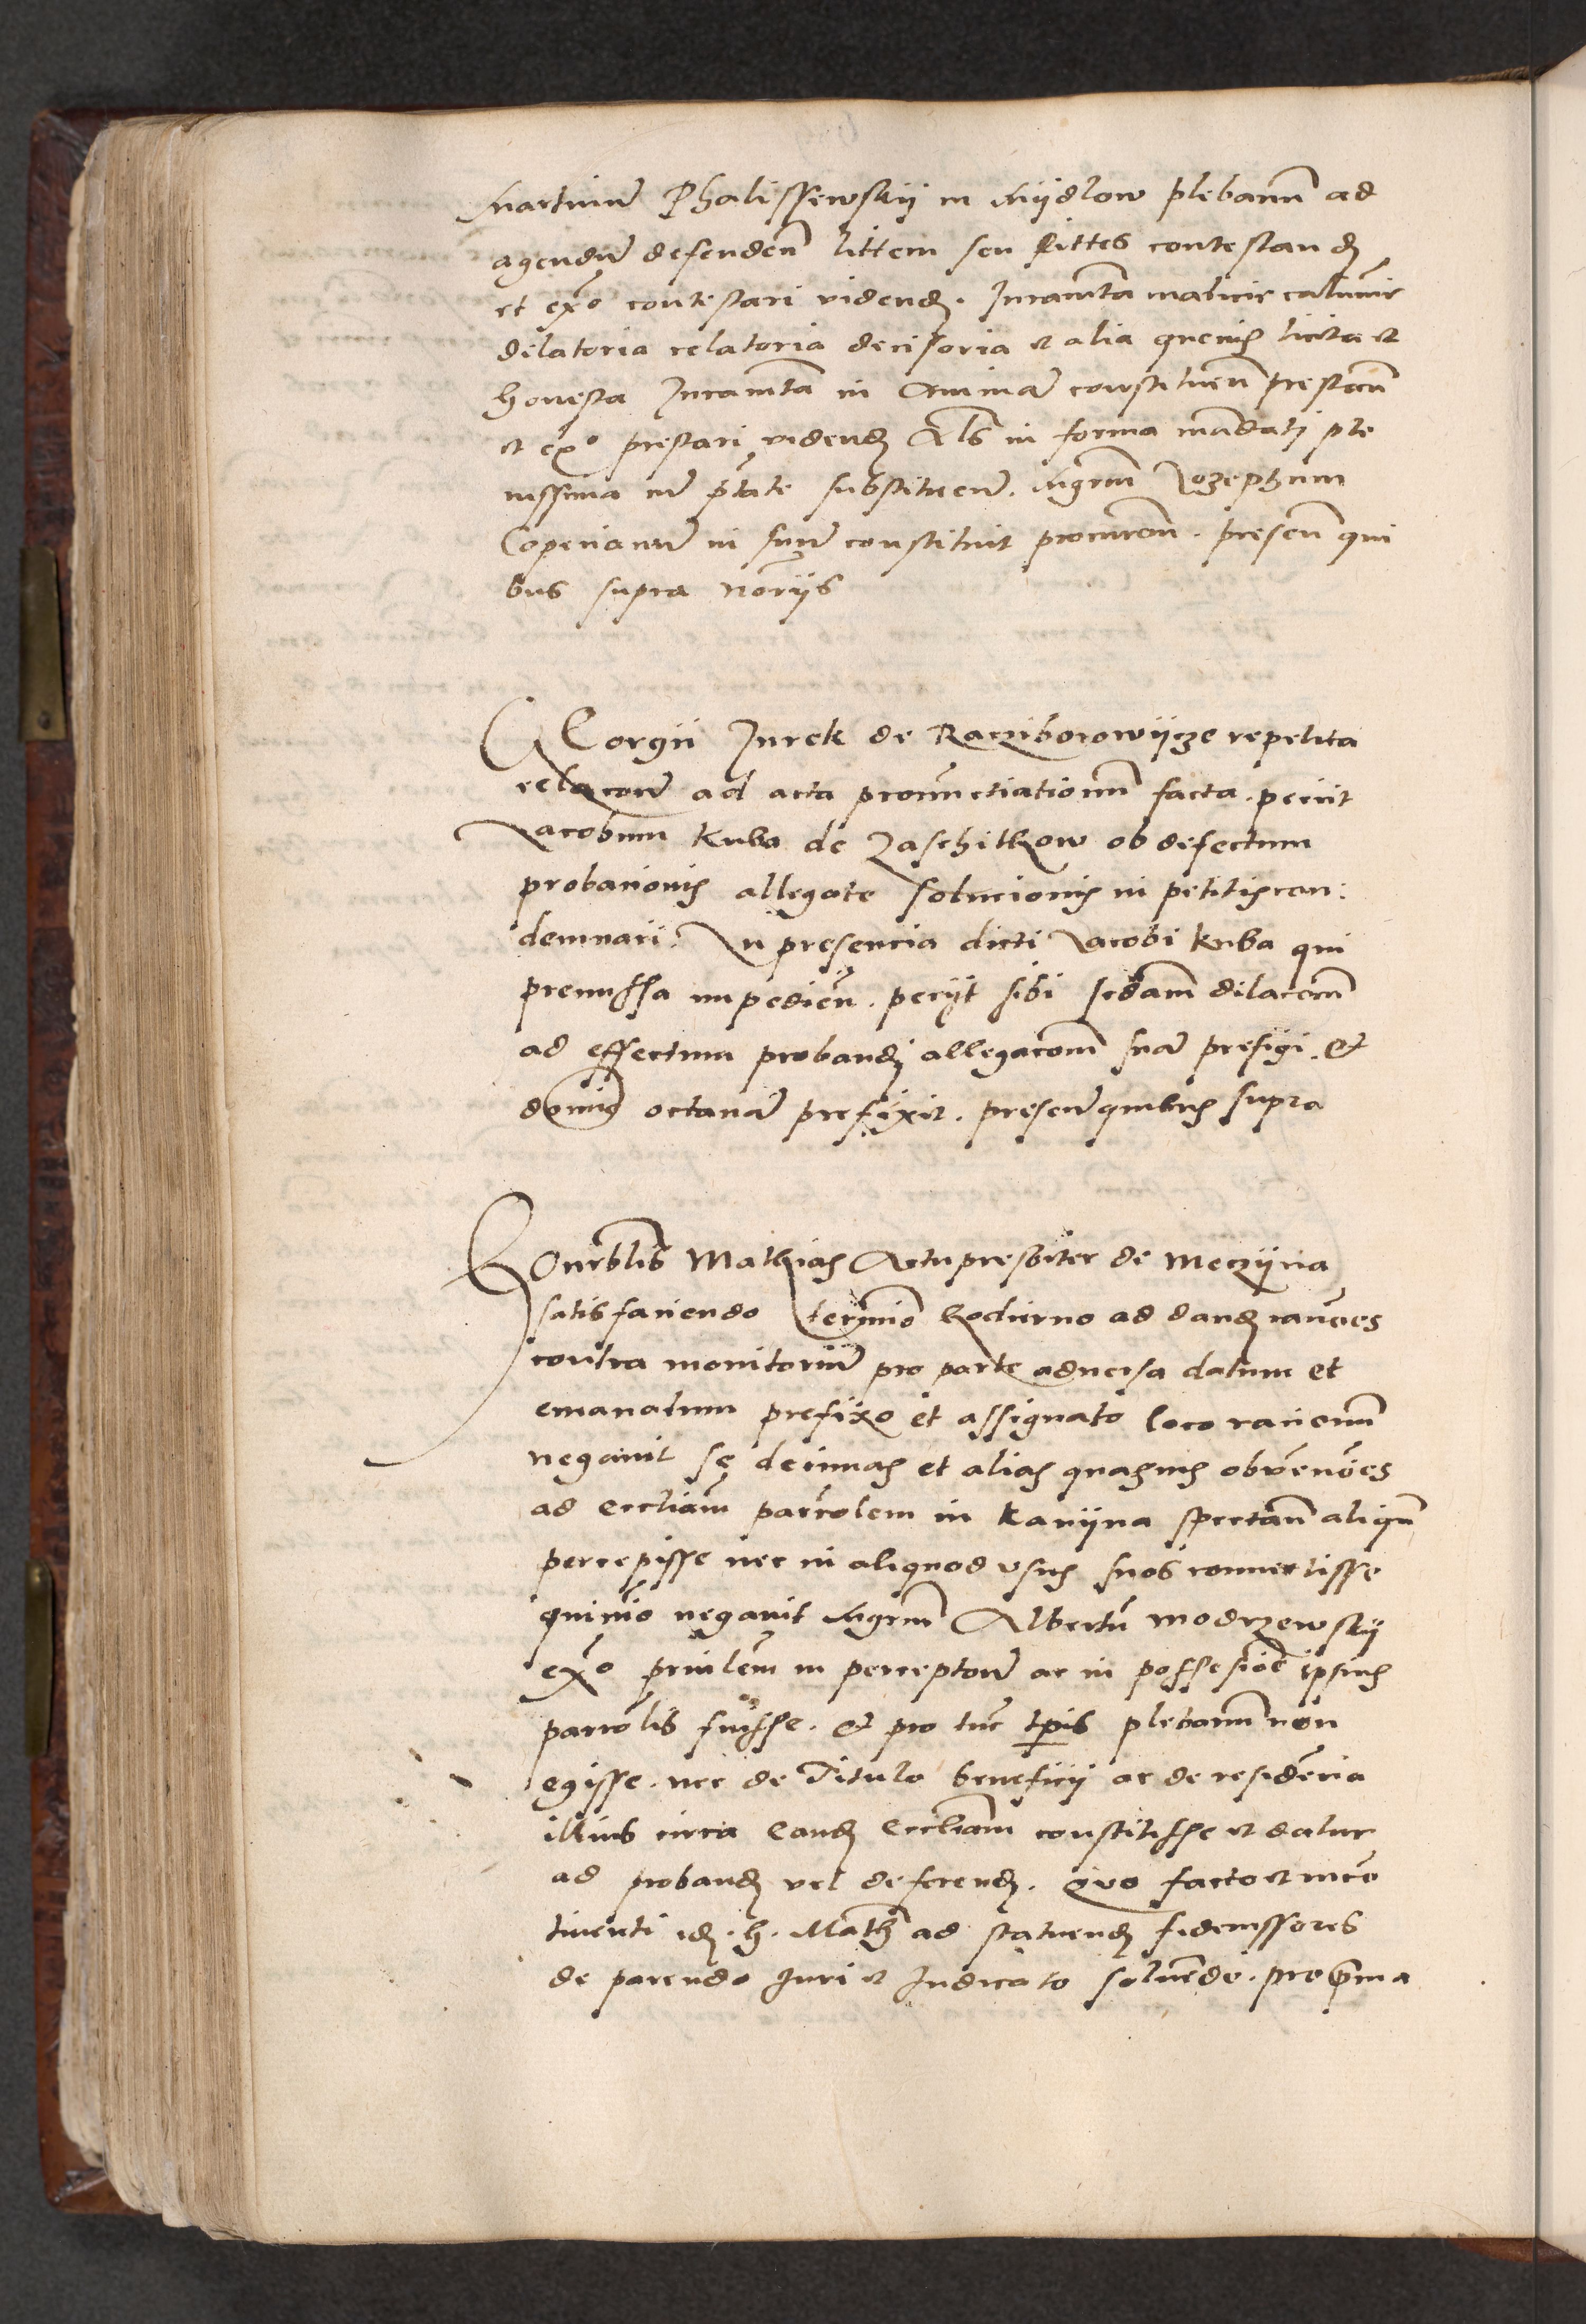 Martinum Phalissewskij in Mijdlow plebanum ad
agendum defendenu littem seu littes contestand
et exo contestari vidend. Juramta malicie calumnie
dilatoria relatoria decisoria et alia quevis licita et
honesta Juramta in Animam constituenu prestanu
et exo prestari vidend Als in forma mandati ple
nissima cum ptate substituenu. Mgrum Jozephum
Coperianum in suum constituit procuroem. presenu qui
bus supra noriis
GEorgii Jurek de Racziborowijcze repetita
relacone ad acta pronunctiationum facta. peciit
Jacobum Kuba de Zaschitkow ob defectum
probacionis allegate solucionis in petitis con:
demnari. In presencia dicti Jacobi Kuba qui
premissa impedien. peciit sibi scdam dilacoem
ad effectum probandi allegacoem suam prefigi. Et
dominus octavam prefixit. presenu quibus supra
HOnrblis Mathias Artu presbiter de Meczijna
satisfaciendo termino hodierno ad dand racoes
contra monitorium pro parte adversa datum et
emanatum prefixo et assignato loco racionum
negavit se decimas et alias quasuis obvencoes
ad eccliam parrolem in Kanijna spectan aliqn
percepisse nec in aliquod usus suos convertisse
quinimo negavit Mgrum Albertu Modrzewskij
exo prinlem in perceptone ac in possesione ipsius
parrolis fuisse. Et pro tunc tpis plebanum non
egisse. nec de Titulo beneficij ac de residencia
illius circa eand eccliam constitisse et datur
ad proband vel deferend. Quo facto et in con
tinenti id. h. Math ad statuend fideiussores
de parendo Juri et Judicato solvendo. pro prima